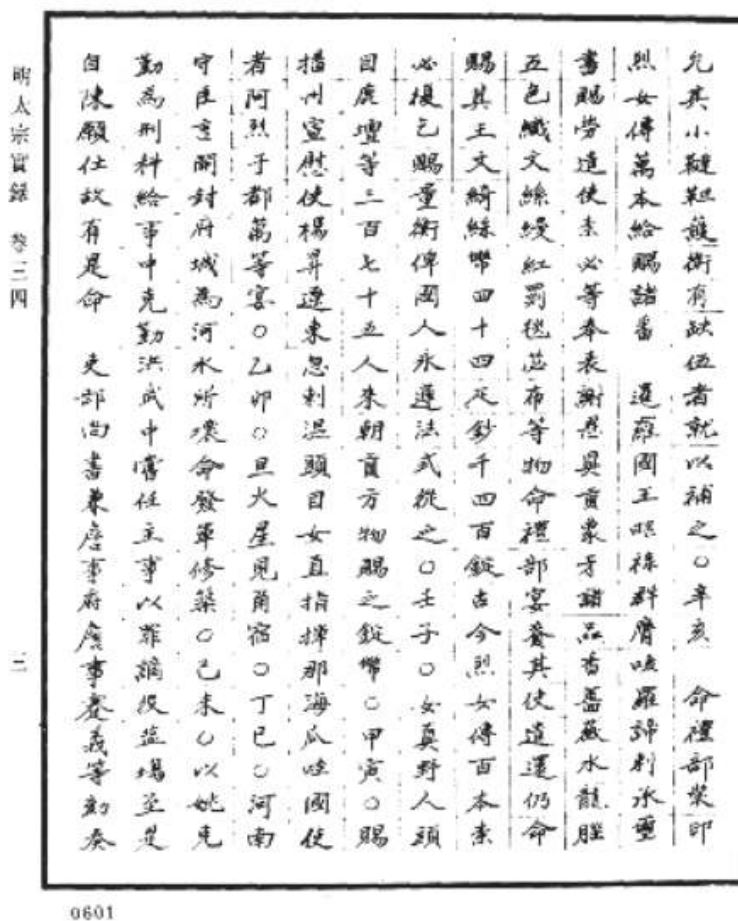 允其小韃靼護衛有缺伍者就以補之○辛亥 命禮部裝印
烈女傳萬本給賜諸番 暹羅國王昭祿群膺哆羅諦剌承璽
書賜勞遣使柰必等奉表謝恩貢象牙諸品香薔薇水龍腦
五色織文絲縵紅罽毯苾布等物命禮部宴賚其使遣還仍命
賜其王文綺絲幣四十四疋鈔千四百錠古今烈女傳百本柰
必復乞賜量衡俾國人永遵法式從之○壬子○女真野人頭
目鹿壇等三百七十五人來朝貢方物賜之錠幣○甲寅○賜
播州宣慰使楊昇遼東忽剌溫頭目女直指揮那海瓜哇國使
者阿烈于都萬等宴○乙卯○旦火星見角宿○丁巳○河南
守臣言開封府城為河水所壞命發軍修築○己未○以姚克
勤為刑科給事中克勤洪武中嘗任主事以罪謫役盐場至是
自陳願仕故有是命 吏部尚書兼詹事府詹事蹇義等劾奏
明太宗實錄 卷三四
二
0601